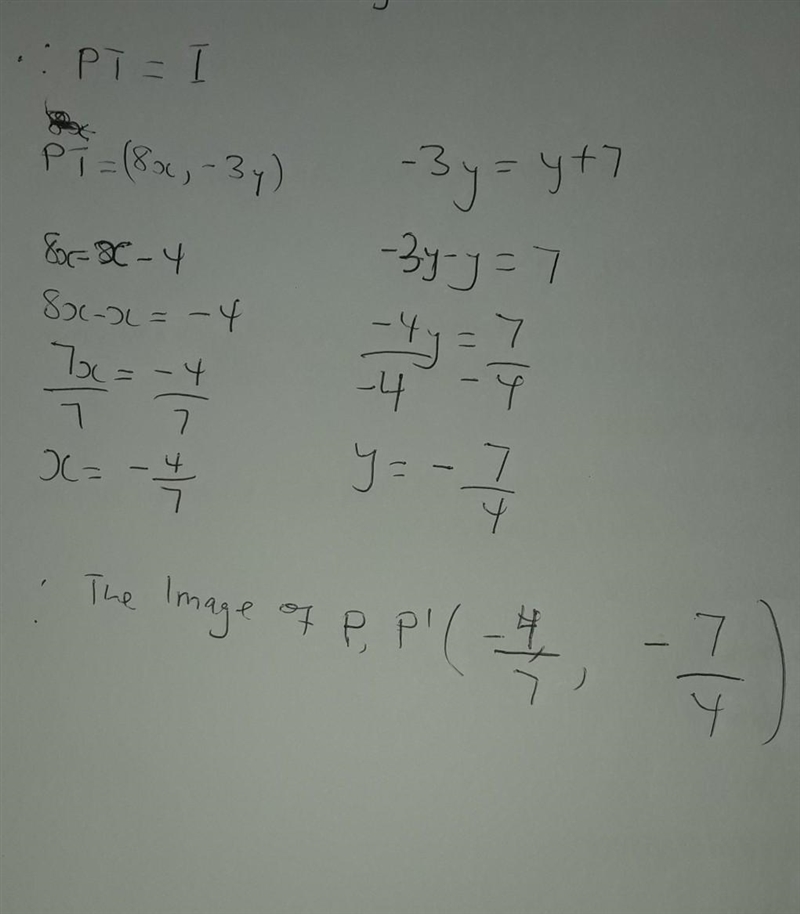 ∴ PT = I
PT = (8x, -3y)
8x = x - 4
8x - x = -4
7x/7 = -4/7
x = -4/7
-3y = y + 7
-3y - y = 7
-4y/-4 = 7/-4
y = -7/4
∴ The Image of P, P' (-4/7, -7/4)